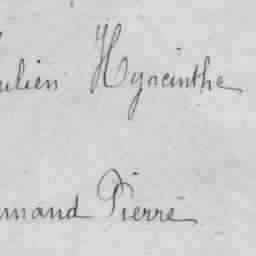 ulien Hyacinthe
mand Pierre